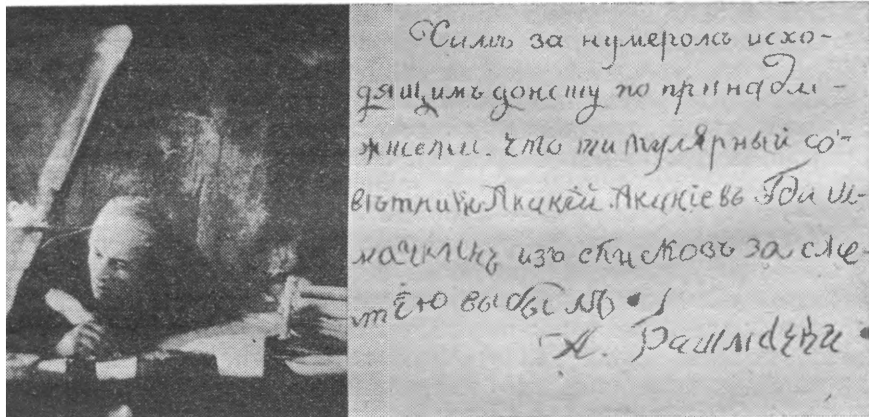 Симъ за нумеромъ исхо-
дящимъ доношу по принадле-
жности. что титулярный со-
вѣтникъ Акакій Акакіевъ
изъ списковъ за сме-
ртію выбылъ.
А.